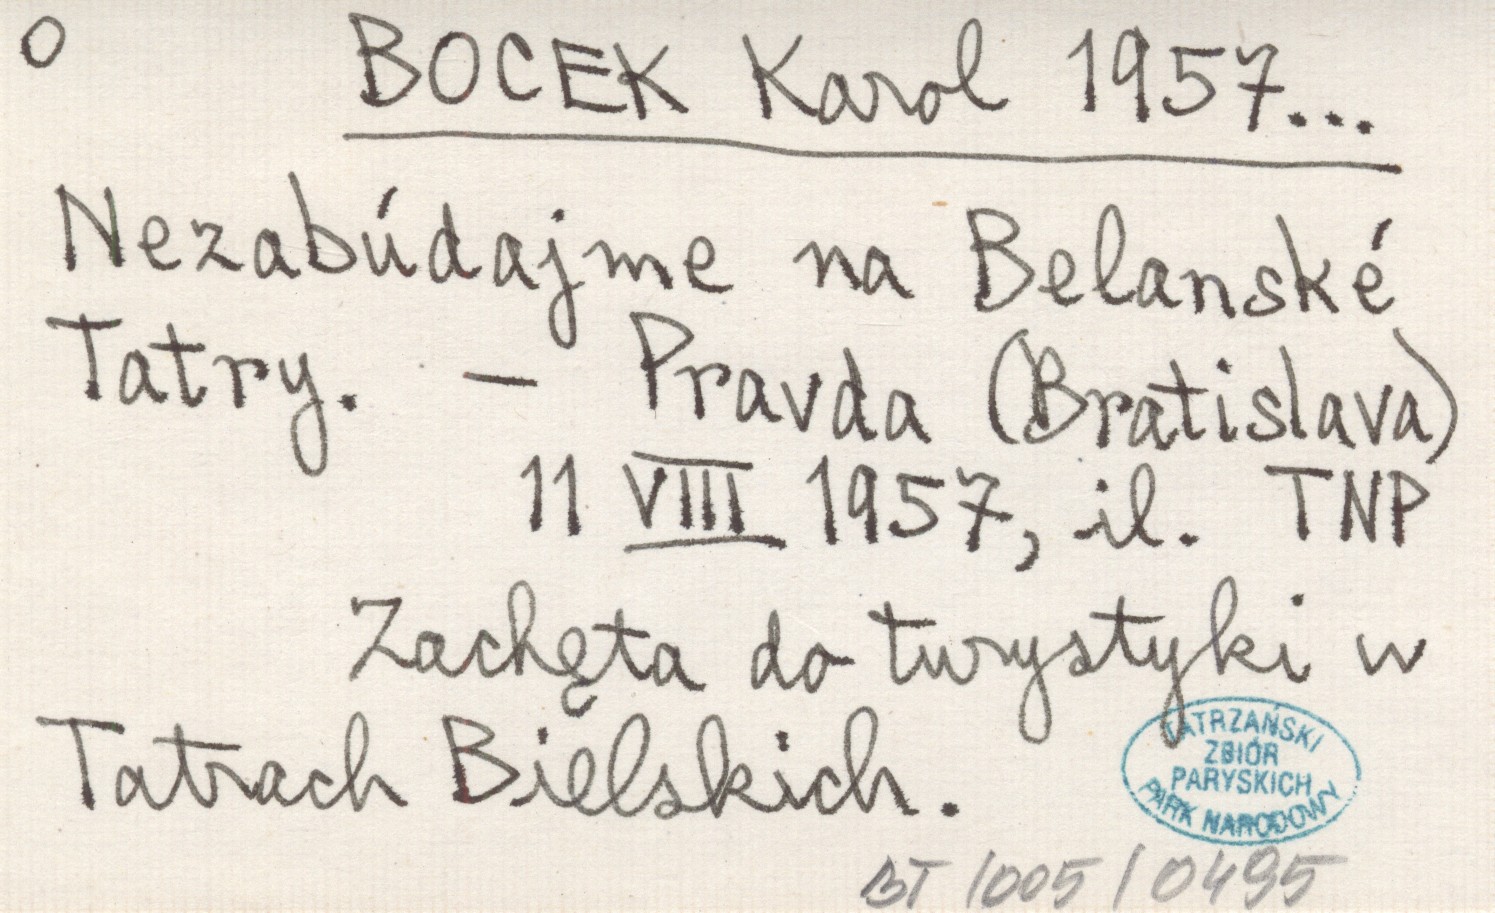 O BOCEK Karol 1957...
Nezabúdajme na Belanské
Tatry. – Pravda (Bratislava)
11 VIII 1957, il. TNP
Zachęta do turystyki w
Tatrach Bielskich.
TATRZAŃSKI
ZBIÓR
PARYSKICH
PARK NARODOWY
BT /005 / 0495